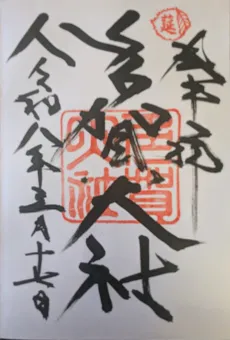 莚
奉拝
多賀大社
多賀大社
令和八年三月十七日